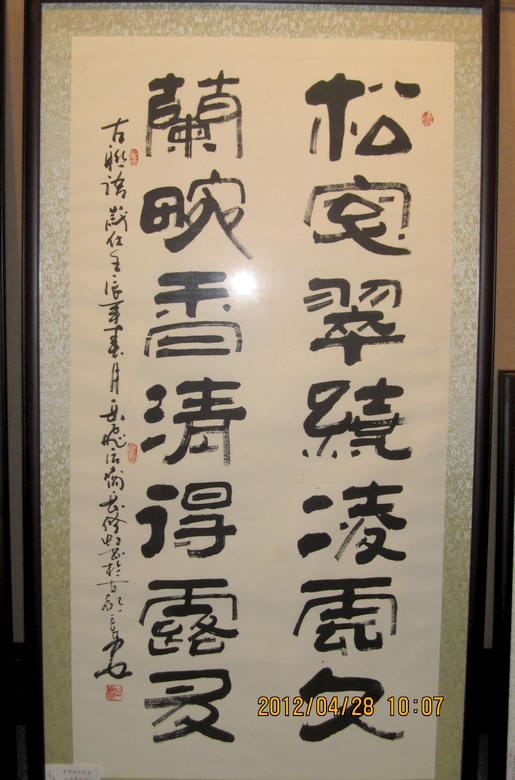 松窗翠繞凌雲久
蘭畹香清得露多
古聯語 歲在壬辰年春月
2012/04/28 10:07